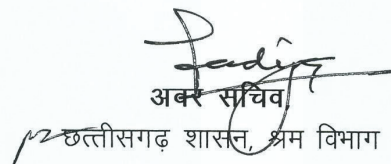 अवर सचिव
छत्तीसगढ़ शासन, श्रम विभाग